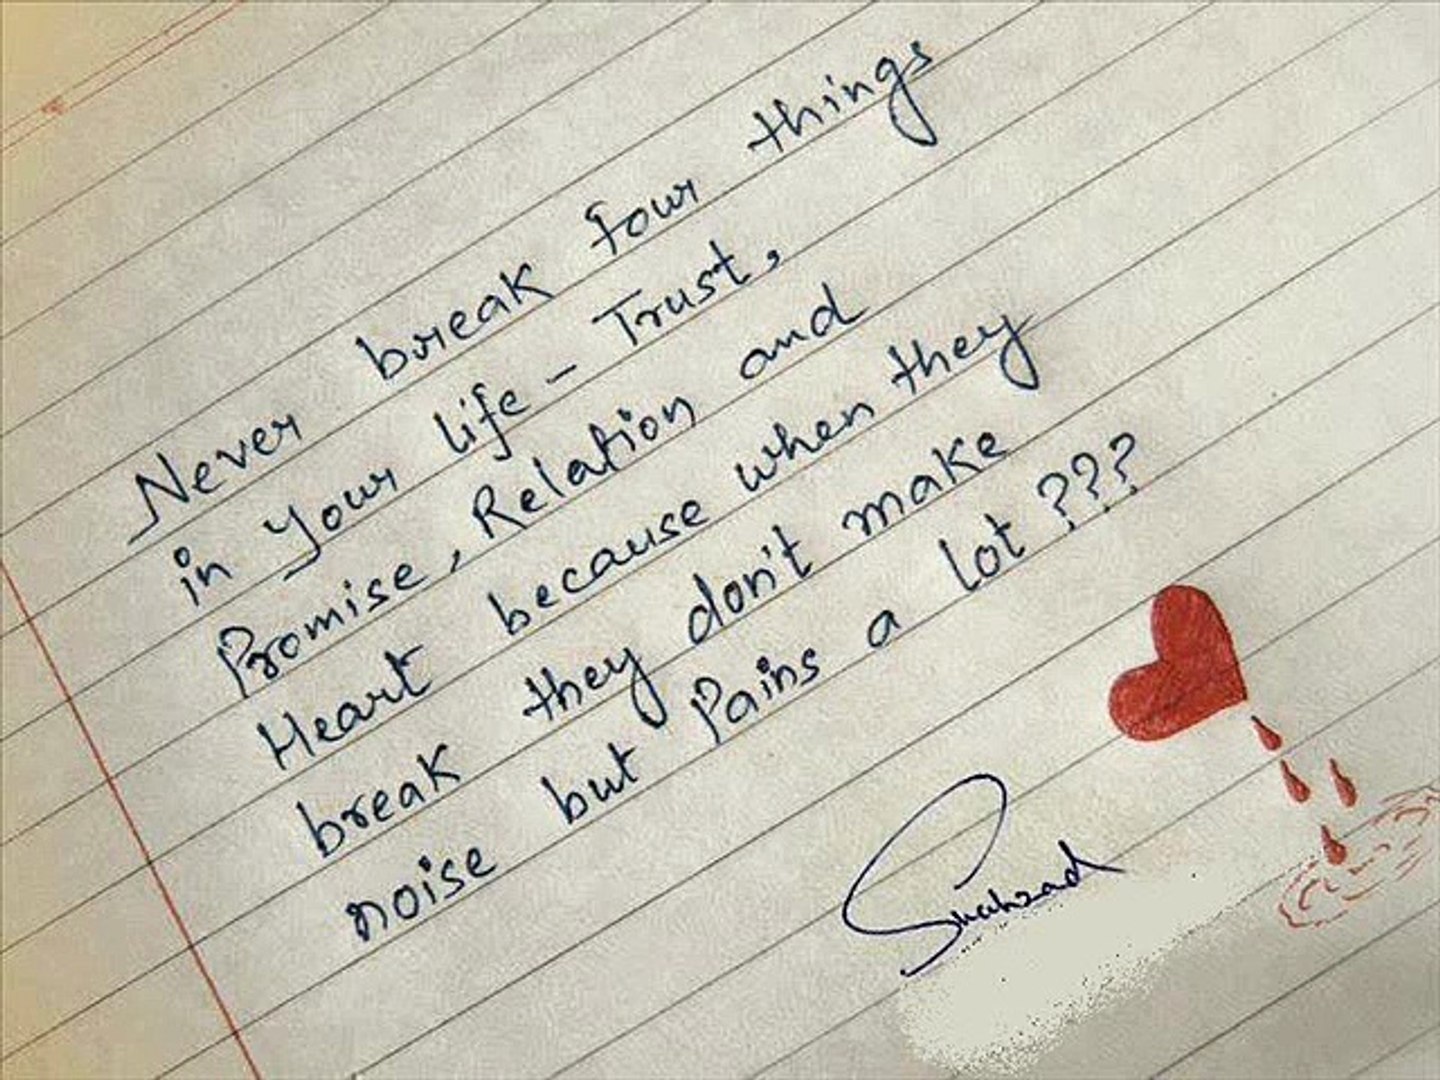 Never break four things
in Your life - Trust,
Promise, Relation and
Heart because when they
break they don't make
noise but Pains a lot ???
Shahzad